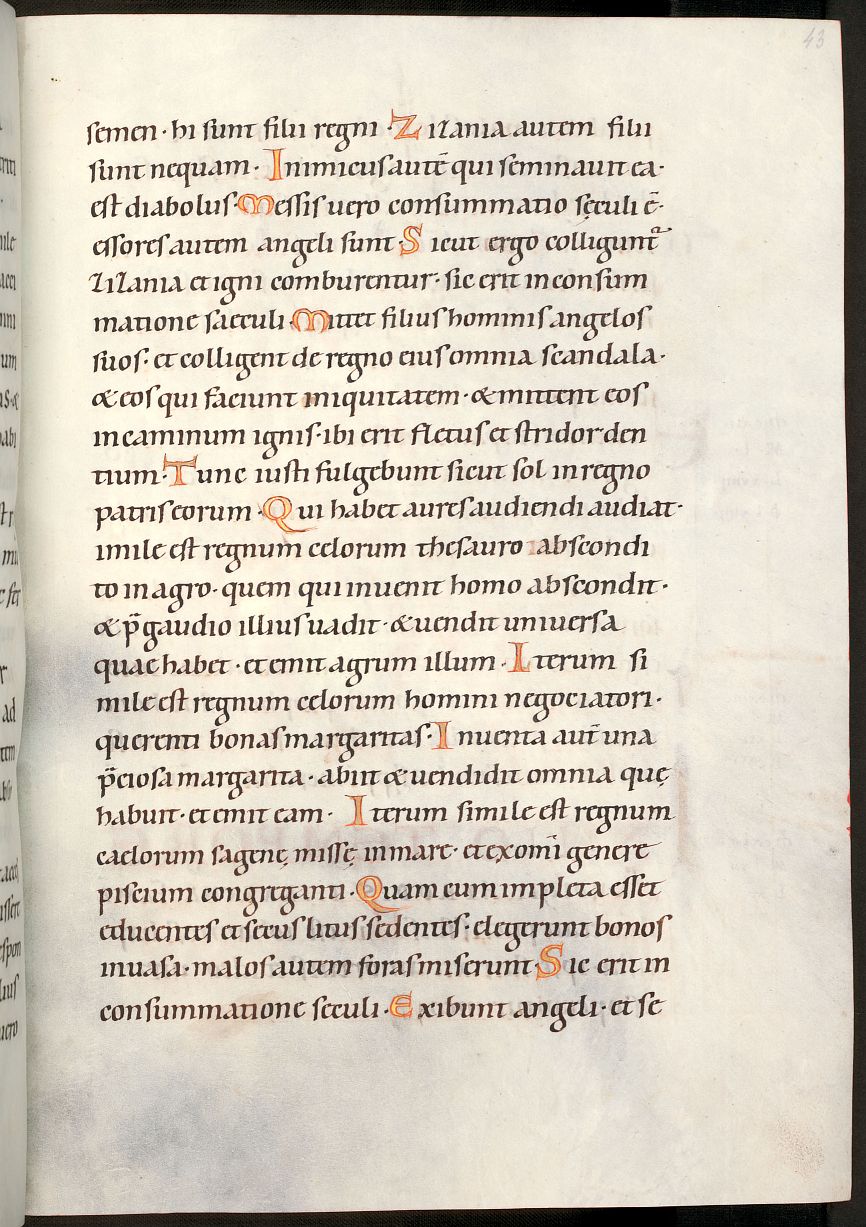 43
semen · hi sunt filii regni · Zizania autem filii
sunt nequam · Inimicus autē qui seminauit ea ·
est diabolus · Messis uero consummatio sęculi ē ·
essores autem angeli sunt · Sicut ergo colligunt᷑
zizania et igni comburentur · sic erit in consum
matione saeculi · Mittet filius hominis angelos
suos · et colligent de regno eius omnia scandala ·
& eos qui faciunt iniquitatem · & mittent eos
in caminum ignis · ibi erit fletus et stridor den
tium · Tunc iusti fulgebunt sicut sol in regno
patris eorum · Qui habet aures audiendi audiat ·
imile est regnum celorum thesauro abscondi
to in agro · quem qui inuenit homo abscondit ·
& p̄ gaudio illius uadit · & uendit uniuersa
quae habet · et emit agrum illum · Iterum si
mile est regnum celorum homini negociatori ·
querenti bonas margaritas · Inuenta aut̄ una
p̄ciosa margarita · abiit & uendidit omnia quę
habuit · et emit eam · Iterum simile est regnum
caelorum sagenę missę in mare · et ex om̄i genere
piscium congreganti · Quam cum impleta esset
educentes et secus litus sedentes · elegerunt bonos
in uasa · malos autem foras miserunt · Sic erit in
consummatione seculi · Exibunt angeli · et se